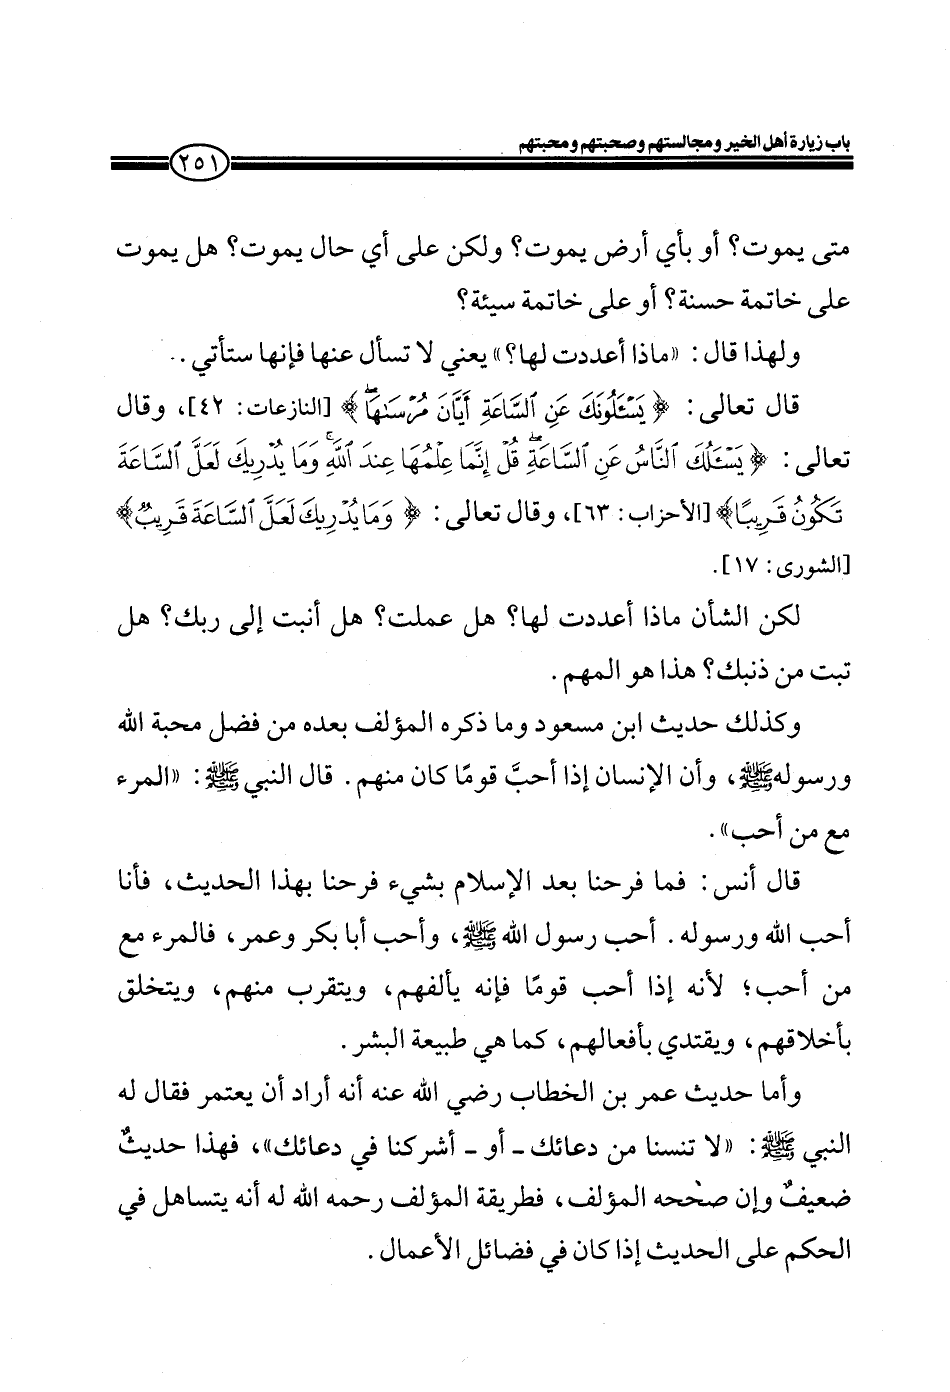 باب زيارة أهل الخير ومجالستهم وصحبتهم ومحبتهم
٢٥١
متى يموت؟ أو بأي أرض يموت؟ ولكن على أي حال يموت؟ هل يموت
على خاتمة حسنة؟ أو على خاتمة سيئة؟
ولهذا قال: «ماذا أعددت لها؟» يعني لا تسأل عنها فإنها ستأتي ..
قال تعالى: ﴿يَسْـَٔلُونَكَ عَنِ ٱلسَّاعَةِ أَيَّانَ مُرْسَىٰهَا ۖ﴾ [النازعات: ٤٢]، وقال
تعالى: ﴿يَسْـَٔلُكَ ٱلنَّاسُ عَنِ ٱلسَّاعَةِ ۖ قُلْ إِنَّمَا عِلْمُهَا عِندَ ٱللَّهِ ۚ وَمَا يُدْرِيكَ لَعَلَّ ٱلسَّاعَةَ
تَكُونُ قَرِيبًا﴾ [الأحزاب: ٦٣]، وقال تعالى: ﴿وَمَا يُدْرِيكَ لَعَلَّ ٱلسَّاعَةَ قَرِيبٌ﴾
[الشورى: ١٧].
لكن الشأن ماذا أعددت لها؟ هل عملت؟ هل أنبت إلى ربك؟ هل
تبت من ذنبك؟ هذا هو المهم.
وكذلك حديث ابن مسعود وما ذكره المؤلف بعده من فضل محبة الله
ورسوله ﷺ، وأن الإنسان إذا أحبَّ قومًا كان منهم. قال النبي ﷺ: «المرء
مع من أحب».
قال أنس: فما فرحنا بعد الإسلام بشيء فرحنا بهذا الحديث، فأنا
أحب الله ورسوله. أحب رسول الله ﷺ، وأحب أبا بكر وعمر، فالمرء مع
من أحب؛ لأنه إذا أحب قومًا فإنه يألفهم، ويتقرب منهم، ويتخلق
بأخلاقهم، ويقتدي بأفعالهم، كما هي طبيعة البشر.
وأما حديث عمر بن الخطاب رضي الله عنه أنه أراد أن يعتمر فقال له
النبي ﷺ: «لا تنسنا من دعائك ـ أو ـ أشركنا في دعائك»، فهذا حديثٌ
ضعيفٌ وإن صححه المؤلف، فطريقة المؤلف رحمه الله له أنه يتساهل في
الحكم على الحديث إذا كان في فضائل الأعمال.